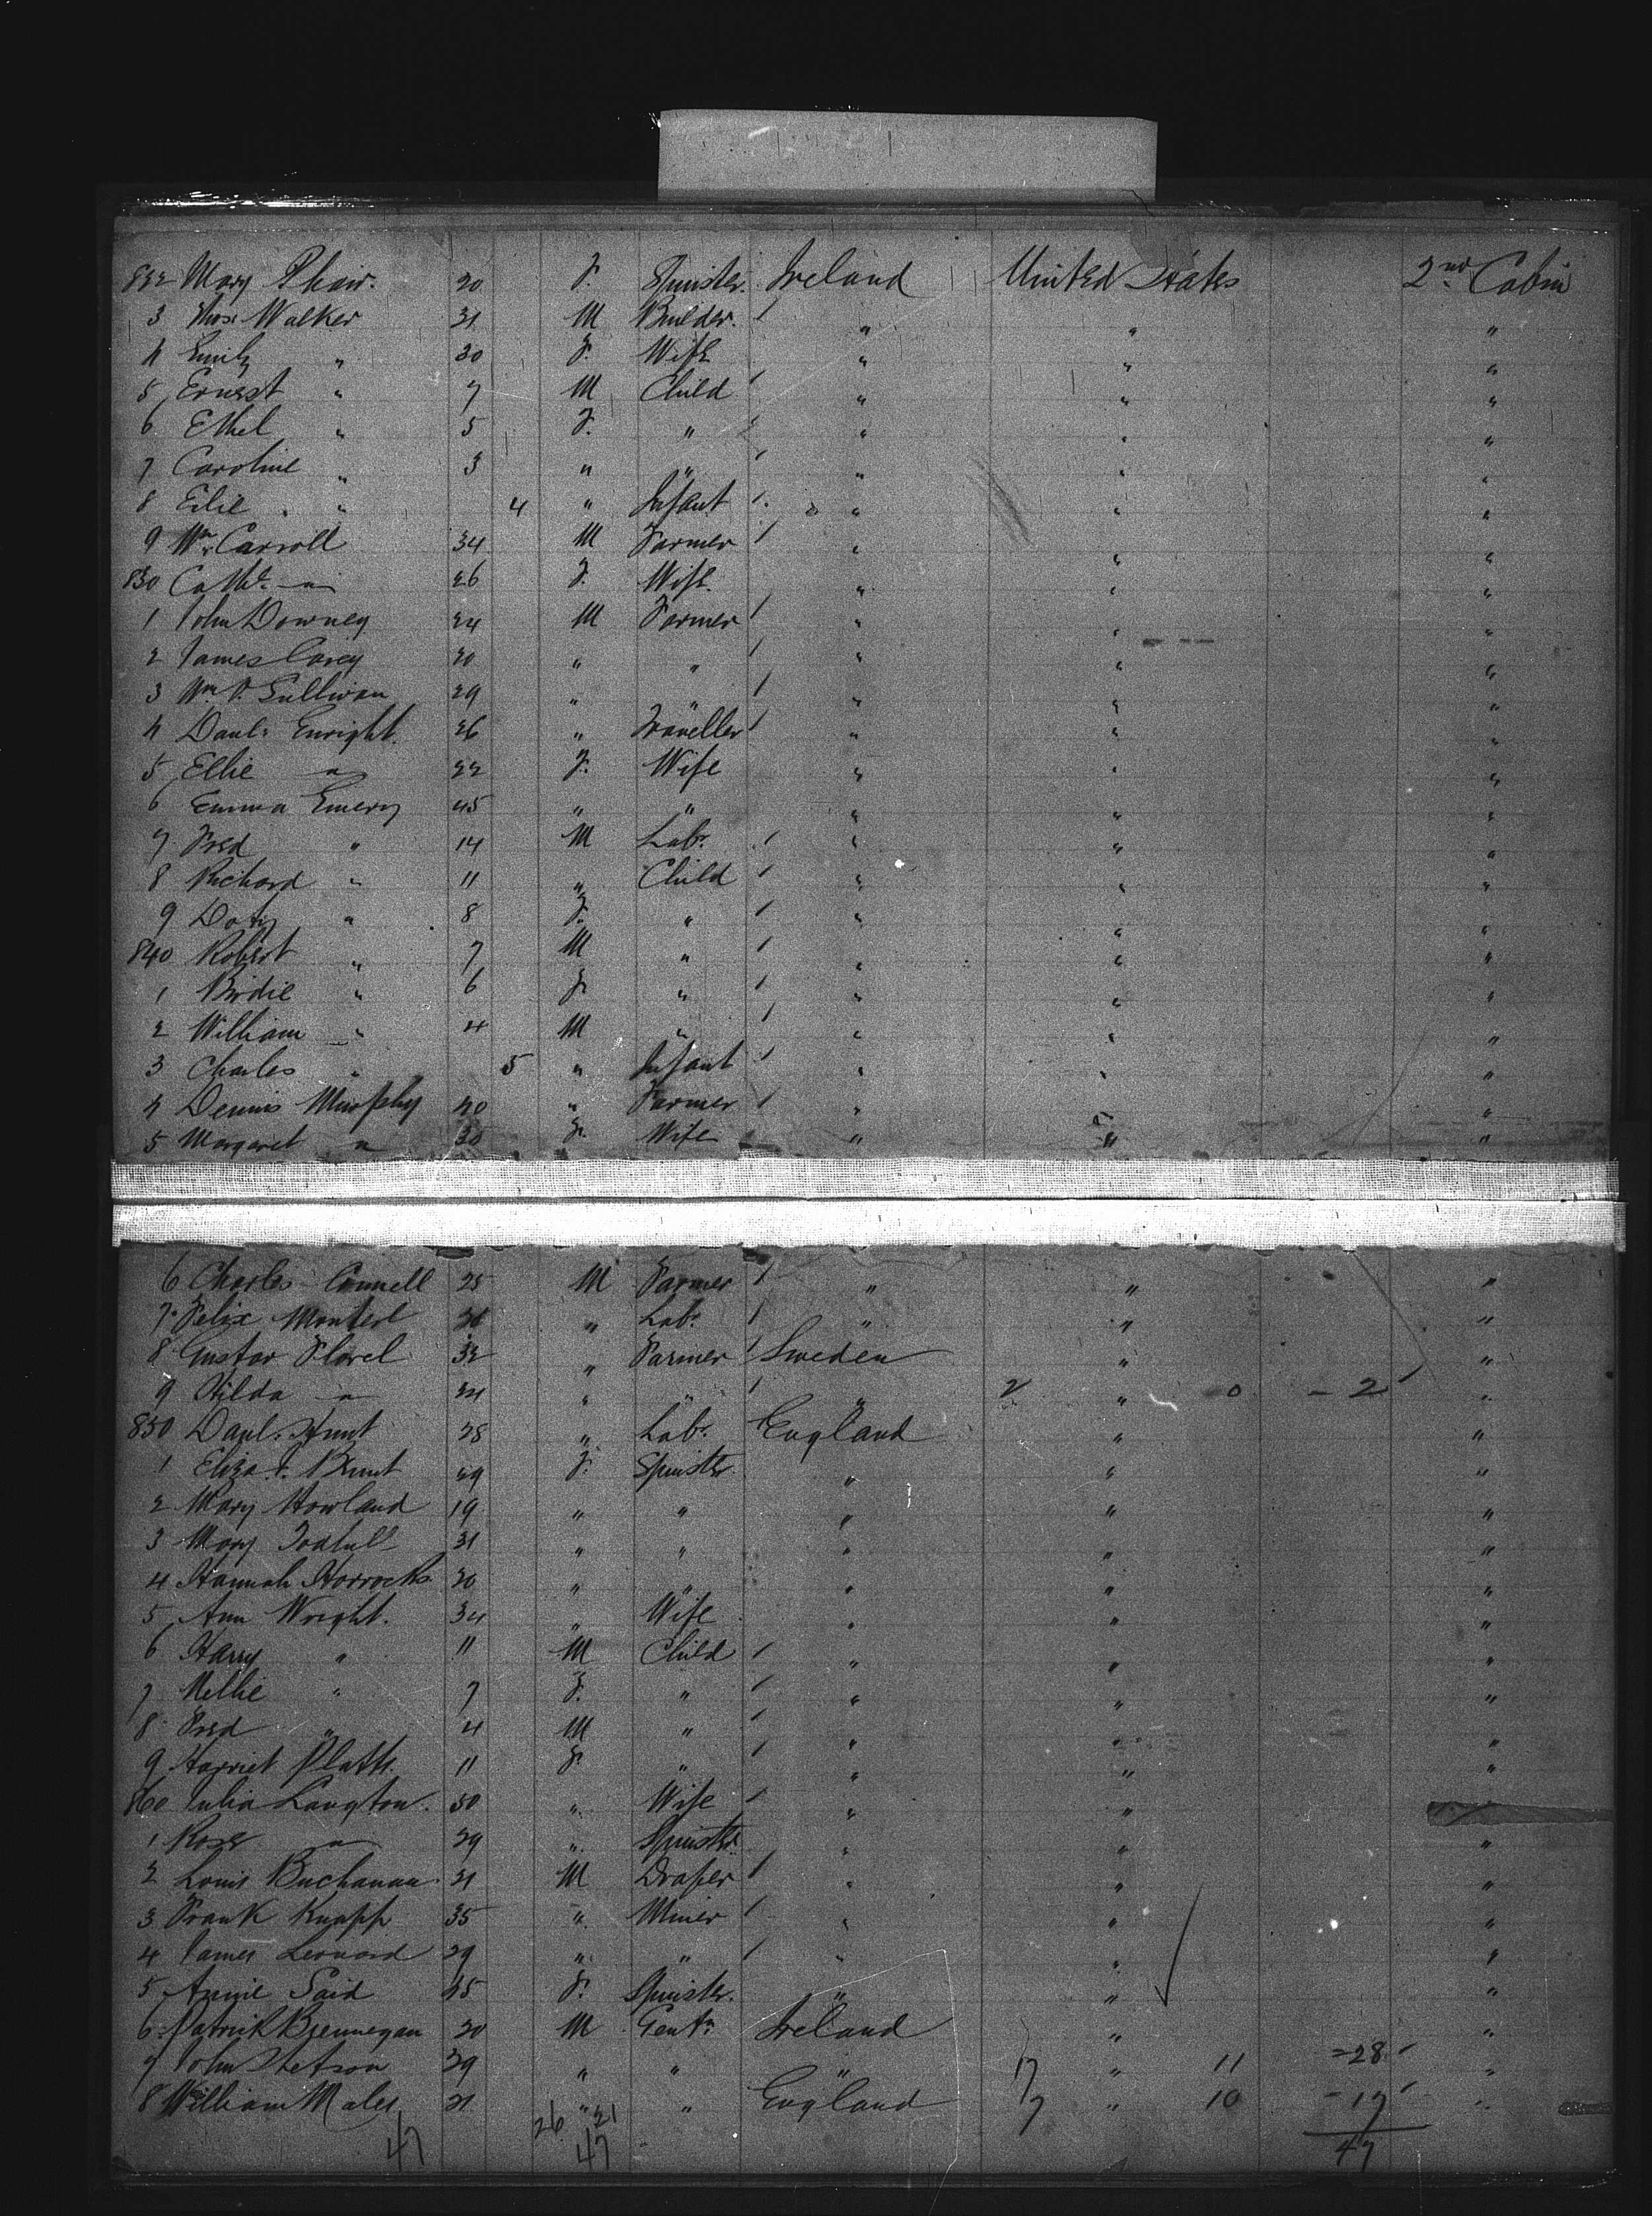 822 Mary Phair. 20 F. Spinster. Ireland United States 2nd Cabin
3 Thos. Walker 31 M Builder. " " "
4 Emily " 30 F. Wife " " "
5 Ernest " 7 M Child " " "
6 Ethel " 5 F. " " " "
7 Caroline " 3 " " " " "
8 Edie " 4 " Infant " " "
9 Wm. Carroll 34 M Farmer " " "
830 Cathe. " 26 F. Wife " " "
1 John Downey 24 M Farmer " " "
2 James Carey 20 " " " " "
3 Wm. P. Sullivan 29 " " " " "
4 Danl. Enright. 26 " Traveller " " "
5 Ellie " 22 F. Wife " " "
6 Emma Emery 45 " " " " "
7 Fred " 14 M Labr. " " "
8 Richard " 11 " Child " " "
9 Doty " 8 F. " " " "
840 Robert " 7 M " " " "
1 Birdie " 6 F. " " " "
2 William " 4 M " " " "
3 Charles " 5 " Infant " " "
4 Dennis Murphy 40 " Farmer " " "
5 Margaret " 30 F. Wife " " "
6 Charles Connell 25 M Farmer " " "
7 Felix " Labr. " " "
8 Gustav Florel 32 " Farmer Sweden " "
9 Hilda " 24 " " " 2 " 0 - 2 "
850 Danl. Hunt 28 " Labr. England " "
1 Eliza. J. Brunt 29 F. Spinster. " " "
2 Mary Howland 19 " " " " "
3 Mary 31 " " " " "
4 Hannah Horrocks. 20 " " " " "
5 Ann Wright. 34 " Wife " " "
6 Harry " 11 M Child " " "
7 Nellie " 7 F. " " " "
8 Fred " 4 M " " " "
9 Harriet Platts. 11 F. " " " "
860 Julia Langton. 50 " Wife " "
1 Rose " 29 " Spinster. " " "
2 Louis Buchanan. 21 M Draper " " "
3 Frank Knapp 35 " Miner " " "
4 James Leonard 29 " " " " "
5 Annie Said 25 F. Spinster. " " "
6 Patrick Brennegan 20 M Gentn. Ireland " "
7 John Stetson 29 " " " 17 " 11 =28 "
8 William Males 21 " " England 7 " 10 - 17 "
26 21
47 47 47